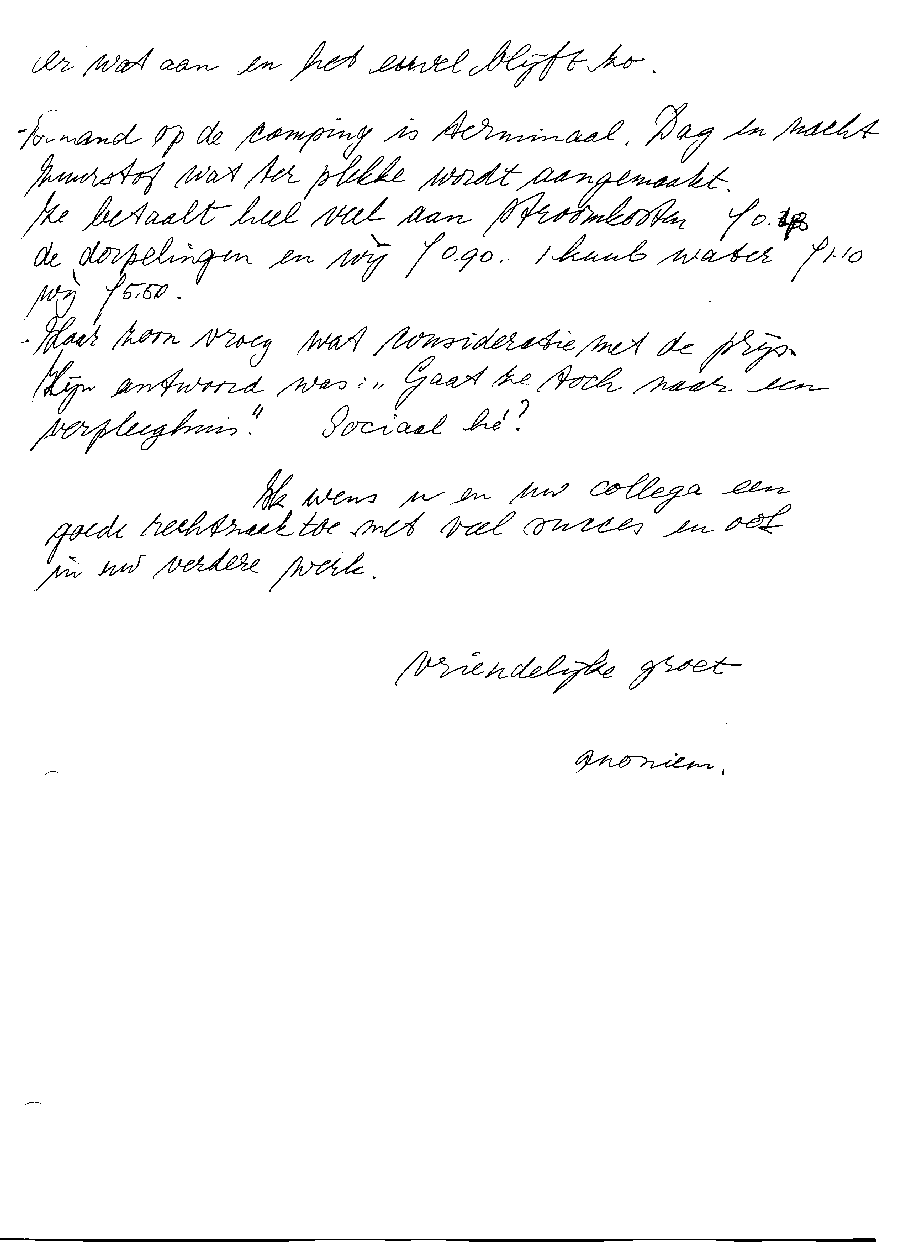 er wat aan en het euvel blijft zo.
- Iemand op de camping is terminaal. Dag en nacht
zuurstof wat ter plekke wordt aangemaakt.
Ze betaalt heel veel aan stroomkosten ƒ0.
de dorpelingen en wij ƒ0.90. 1 kuub water ƒ1.10
wij ƒ5.50.
- Haar zoon vroeg wat consideratie met de prijs.
Zijn antwoord was: „Gaat ze toch naar een
verpleeghuis". Sociaal hé?
Ik wens u en uw collega een
goede rechtzaak toe met veel succes en ook
in uw verdere werk.
Vriendelijke groet
Anoniem.